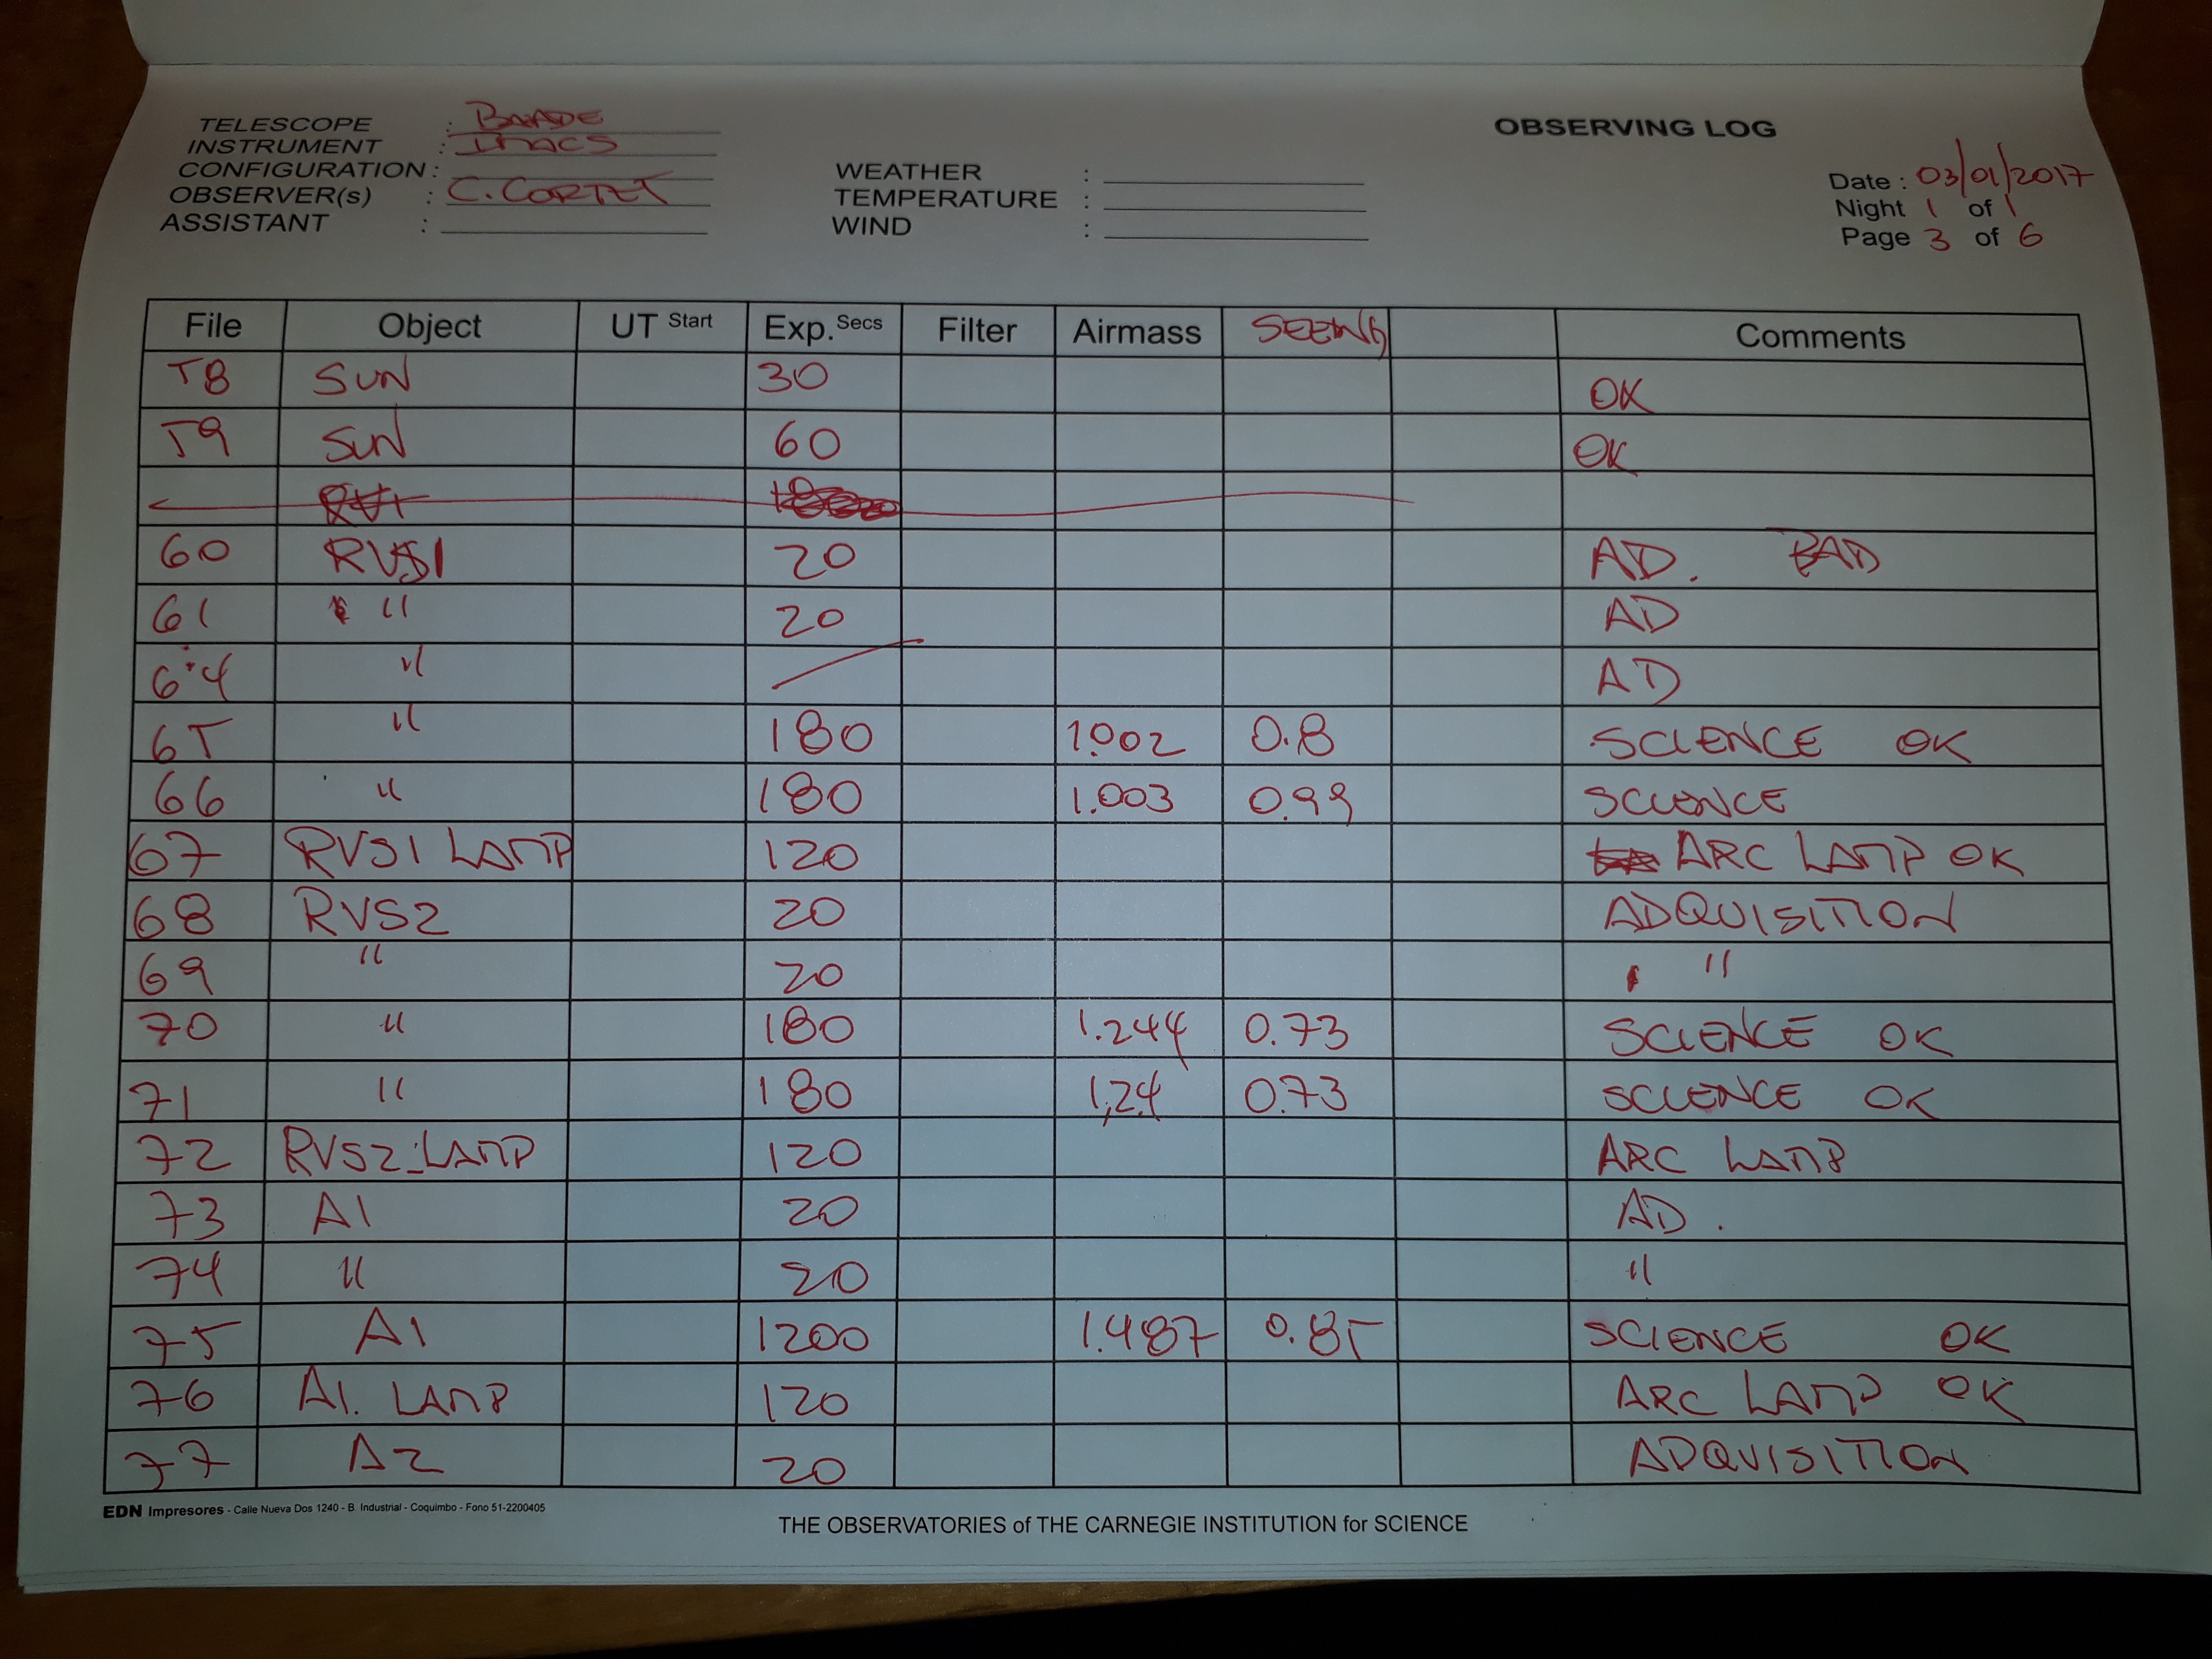 OBSERVING LOG
TELESCOPE : BAADE
INSTRUMENT : IMACS
CONFIGURATION :
OBSERVER(s) : C. CORTET
ASSISTANT :
WEATHER :
TEMPERATURE :
WIND :
Date : 03/01/2017
Night 1 of 1
Page 3 of 6
File Object UT Start Exp. Secs Filter Airmass SEEING Comments
58 SUN 30 OK
59 SUN 60 OK
60 RVS1 20 AD. BAD
61 " 20 AD
6:4 " AD
65 " 180 1.002 0.8 SCIENCE OK
66 " 180 1.003 0.99 SCIENCE
67 RVS1 LAMP 120 ARC LAMP OK
68 RVS2 20 ADQUISITION
69 " 20 "
70 " 180 1.244 0.73 SCIENCE OK
71 " 180 1,24 0.73 SCIENCE OK
72 RVS2_LAMP 120 ARC LAMP
73 A1 20 AD.
74 " 20 "
75 A1 1200 1.487 0.85 SCIENCE OK
76 A1. LAMP 120 ARC LAMP OK
77 A2 20 ADQUISITION
EDN Impresores - Calle Nueva Dos 1240 - B. Industrial - Coquimbo - Fono 51-2200405
THE OBSERVATORIES of THE CARNEGIE INSTITUTION for SCIENCE